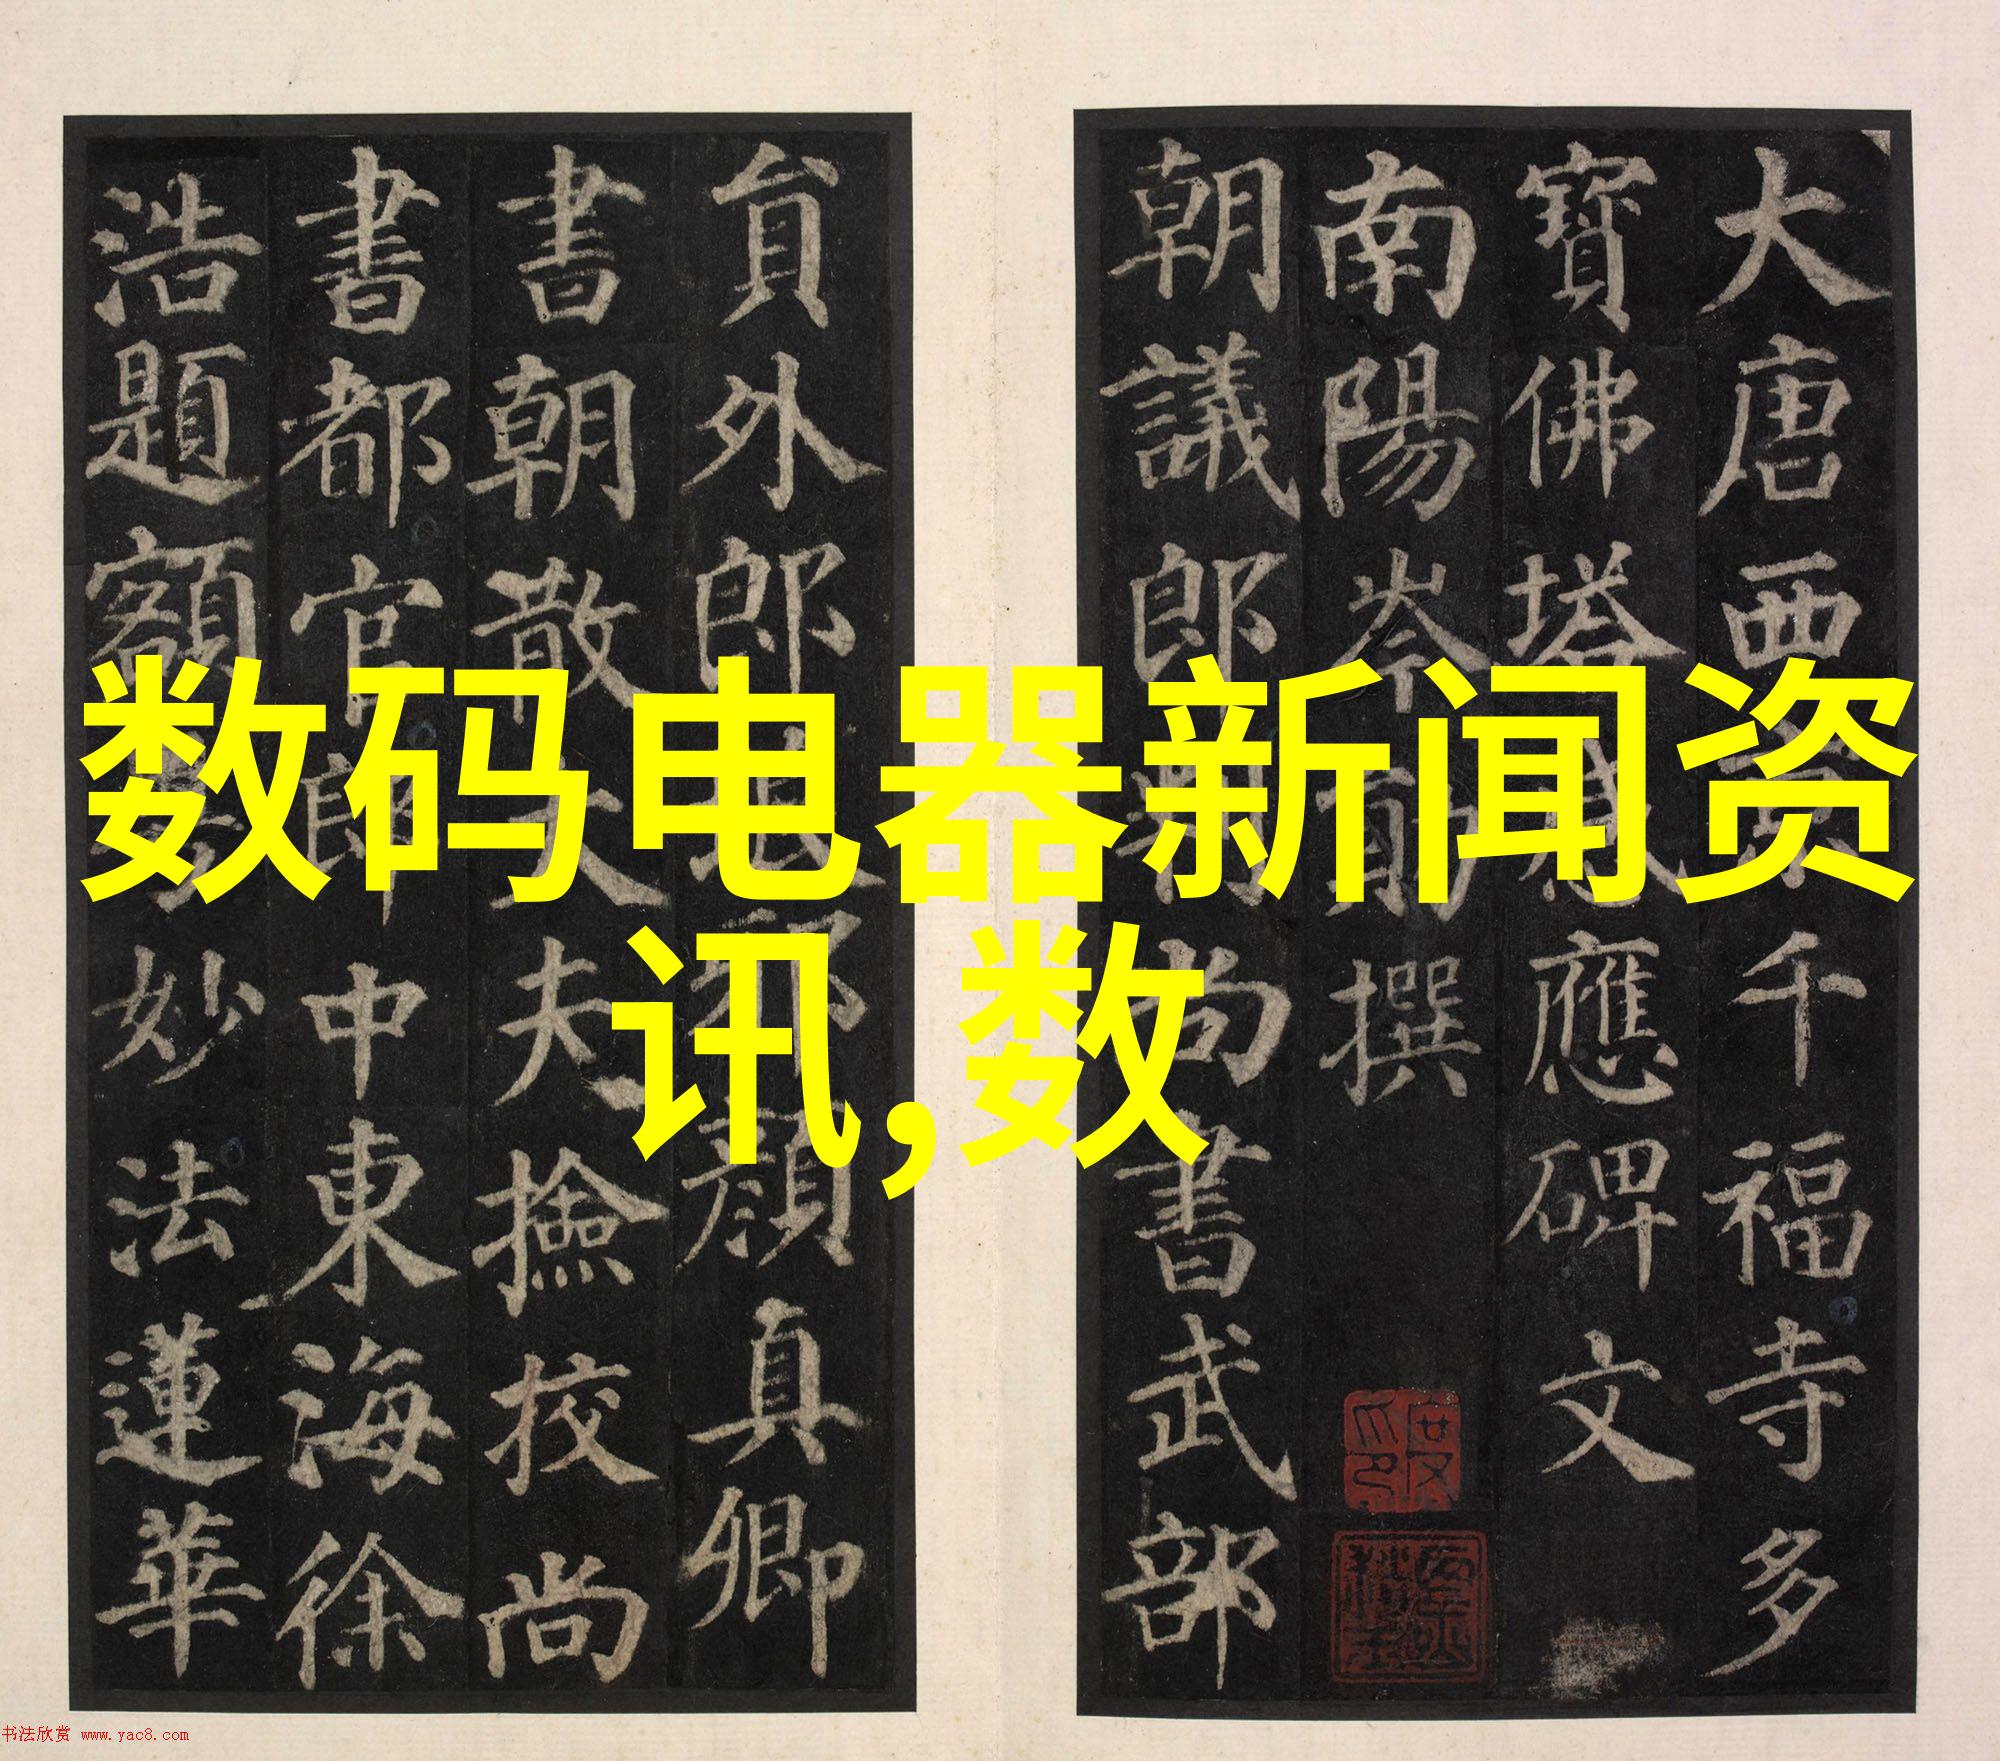 数码电器新闻资
讯,数
大唐西千福寺多
寶佛塔應碑文
南陽岑勛撰
朝議郎尚書武部
貟外郎邪顏真卿
書朝散大夫撿校尚
書都官郎中東海徐
浩題額妙法蓮華
书法欣赏 www.yac8.com